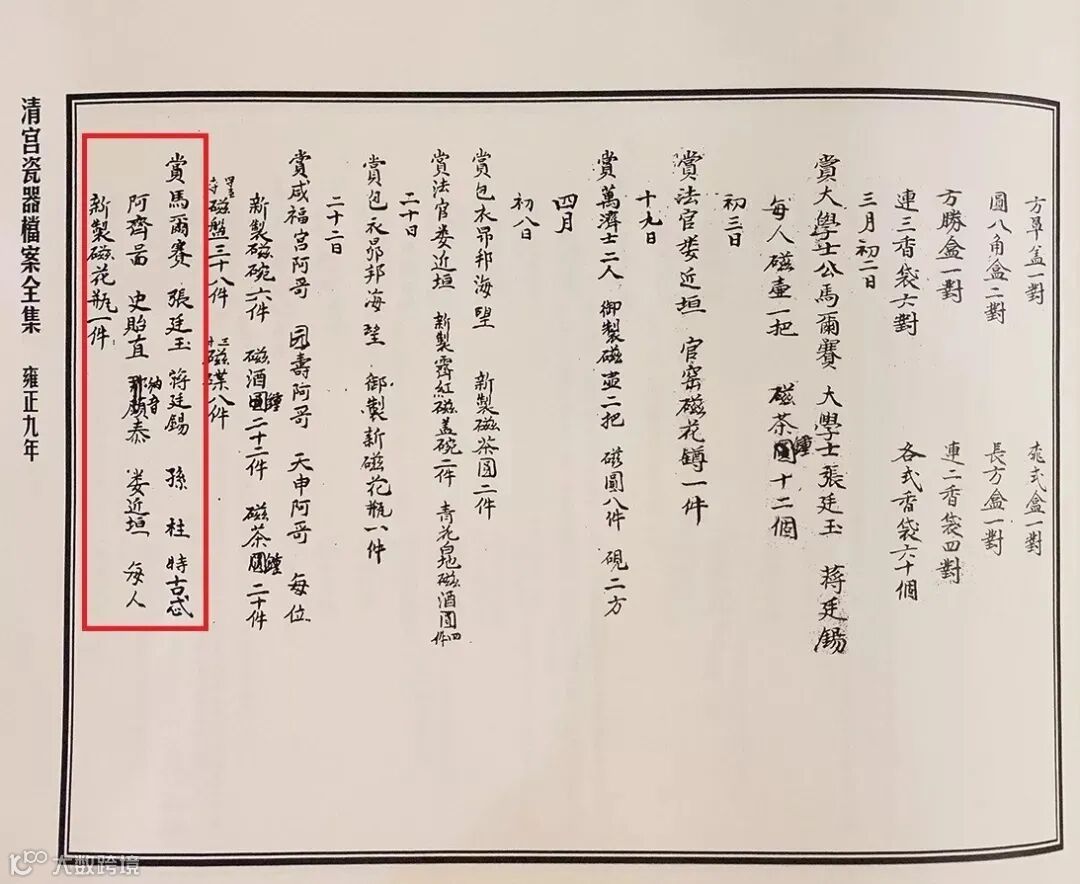 清宫瓷器檔案全集　雍正九年
方罩盖一對　桃式盒一對
圓八角盒二對　長方盒一對
方勝盒一對　連二香袋四對
連三香袋六對　各式香袋六十個
三月初二日
賞大學士公馬爾賽　大學士張廷玉　蔣廷錫
每人磁壺一把　磁茶圓鍾十二個
初三日
賞法官娄近垣　官窑磁花罇一件
十九日
賞萬濟士二人　御製磁壶二把　磁圓八件　硯二方
四月
初八日
賞包衣昂邦海望　新製磁茶圓二件
賞法官娄近垣　新製霽紅磁盖碗二件　青花白地磁酒圓四件
二十日
賞包衣昂邦海望　御製新磁花瓶一件
二十二日
賞咸福宫阿哥　园壽阿哥　天申阿哥　每位
新製磁碗六件　磁酒圓鍾二十二件　磁茶圓鍾二十件
磁盤三十八件　磁碟八件
賞馬爾賽　張廷玉　蔣廷錫　孫柱　特古忒
阿齊啚　史貽直　那納音顔泰　娄近垣　每人
新製磁花瓶一件
大数跨境